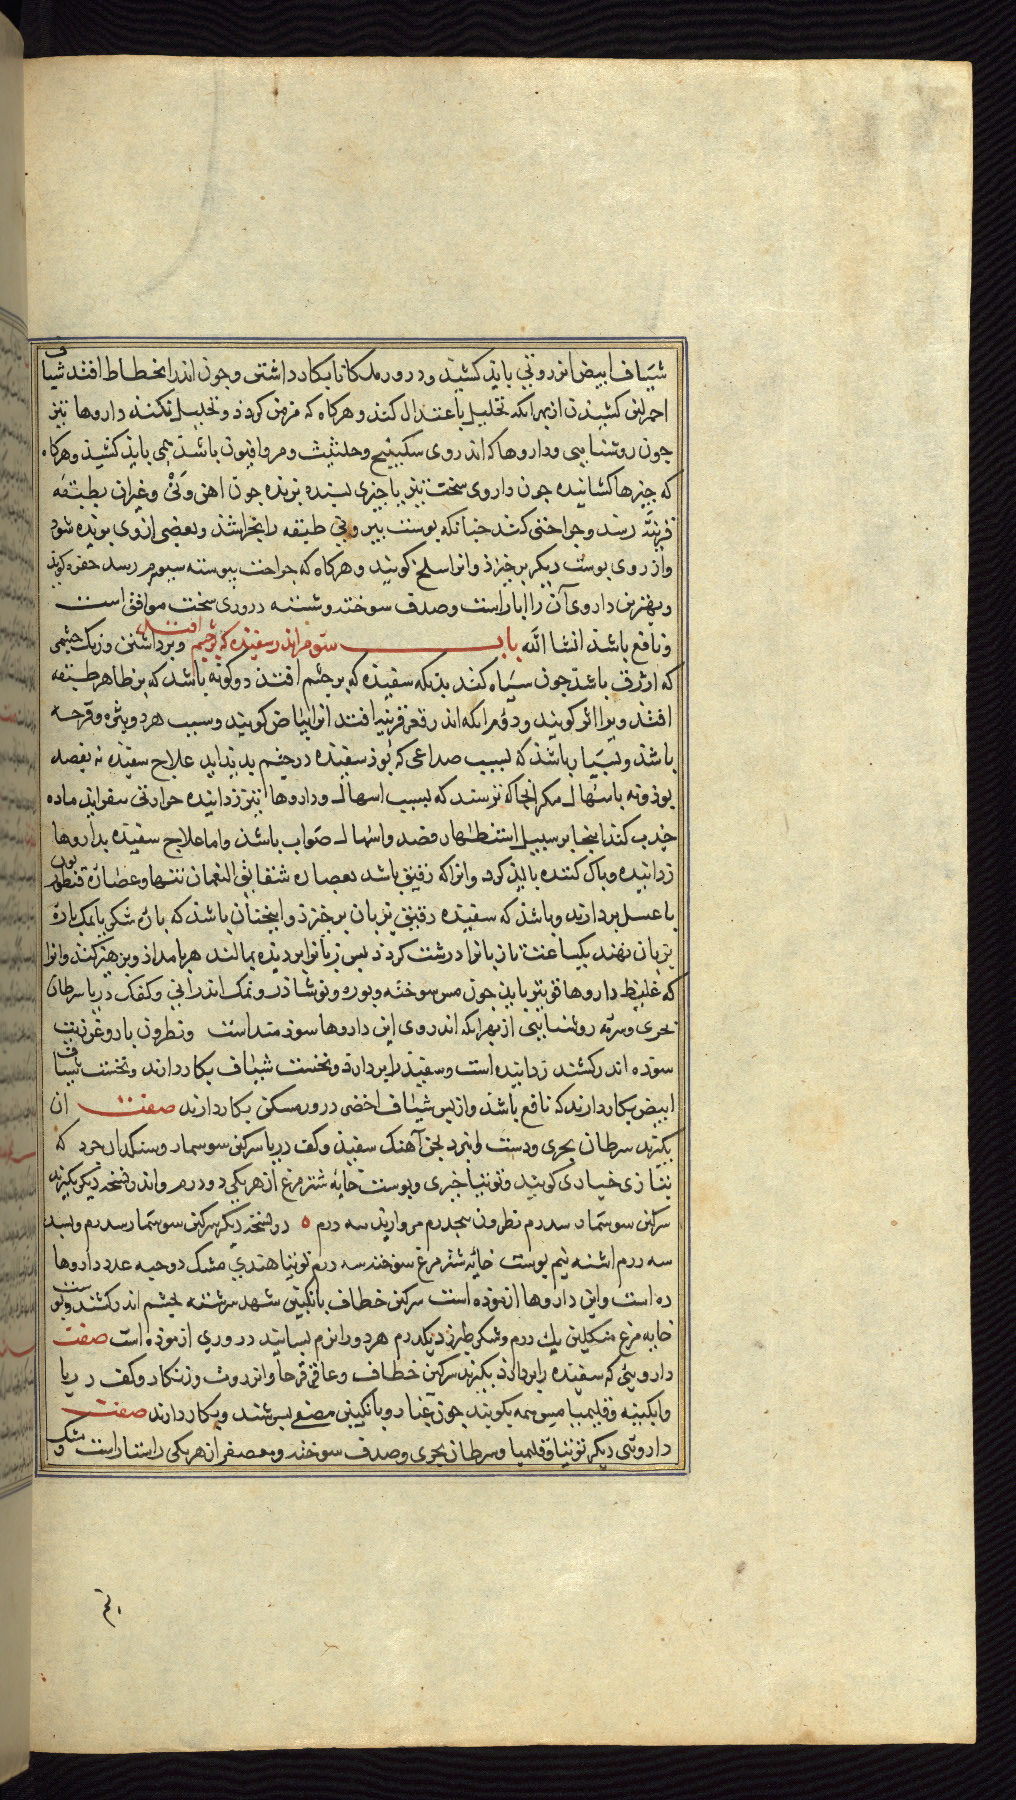 شیاف ابیض انزروتی باید کشید و درور ملکایا بکار داشتن و چون اندر انحطاط افتد شیاف
احمر لین کشیدن از بهر انکه تحلیل باعتدال کند و هرکاه که مزمن کردذ و تحلیل نکند داروها تیز
جون روشنایی و داروها که اندر وی سکبینج و حلتیث و مر و افیون باشد همی باید کشید و هرکاه
که جیزها کشانیده جون داروی سخت تیز یا جیزی بسنده برنده جون اهن و نی و غیران بطبقه
قرنیه رسد و جراحتی کند جنانکه بوست بیرونی طبقه را بخراشد و بعضی از وی بریده شود
و از روی بوست دیکر برخیزد و انرا سلخ کویند و هرکاه که جراحت ببوسته سیوم رسد حفره کویند
و بهترین داروی آن را ابار است و صدف سوخته و شسته درروی سخت موافق است
و نافع باشد انشا الله باب سوم اندر سفیده که بر جشم افتد و برداشتن و رنک جشمی
که ازرق باشد جون سیاه کنند بدنکه سفیده که بر جشم افتد دو کونه باشد یکی بر ظاهر طبقه
افتد و یرا اثر کویند و دوم انکه اندر قعر قرنیه افتد انرا بیاض کویند و سبب هر دو بثره و قرحه
باشد و بسیار باشد که بسبب صداعی که بوذ سفیده در جشم بدید اید علاج سفیده نه بفصد
بوذ و نه باسهال مکر انجا که ترسند که بسبب اسهال و داروها تیز زداینده حرارتی بیفزاید ماده
جذب کند اینجا بر سبیل استظهار فصد و اسهال صواب باشد و اما علاج سفیده بداروها
زداینده و باک کننده باید کرد و انرا که رقیق باشد بعصاره شقایق النعمان تنها و عصاره قنطوریون
با عسل بردارند و باشد که سفیده رقیق بزبان برخیزد و ایجنان باشد که باره شکر یا نمک باره
بر زبان نهند یکساعت تا زبانرا درشت کردد بس زبانرا بر دیده بمالند هر بامداد و برهیز کنند و انرا
که غلیظ داروها قویتر باید جون مس سوخته و بوره و نوشادر و نمک اندرانی و کفک دریا سرطان
بحری و سرمه روشنایی از بهر انکه اندر وی این داروها سوذمند است و نطرون با روغن زیت
سوده اندر کشند زداینده است و سفیده را بردارد و نخست شیاف بکار دارند و نخست شیاف
ابیض بکار دارند که نافع باشد و از بس شیاف اخضر درور مسکن بکار دارند صفت ان
بکیرند سرطان بحری و دست اورنج آهنک سفیذ و کف دریا سرکین سوسمار و سنکدان خرد که
بتازی حباری کویند و توتیا خبری و بوست خایه شترمرغ از هر یکی دو درم و اندر نسخه دیکر بکیرند
سرکین سوسمار سه درم نطرون بنجدرم مروارید سه درم ٥ در نسخه دیکر سرکین سوسمار سه درم و بسد
سه درم اشنه نیم بوست خایه شترمرغ سوخته سه درم توتیا هندی مشک دو حبه عدد داروها
ده است و این داروها ازموده است سرکین خطاف بانکبین شهد سرشته بجشم اندر کشند و بوست
خایه مرغ مشکلین یک درم و شکر طبرزد یکدرم هر دو را نرم بسایند درروی ازموده است صفت
داروییی که سفیده را بردارد بکیرند سرکین خطاف و عاقرقرحا و انزروت و زنکار و کف دریا
و ابکینه و قلیمیا مس همه بکوبند جون غبار و بانکبین مصفی بسرشند و بکار دارند صفت
دارویی دیکر توتیا و قلیمیا و سرطان بحری و صدف سوخته و معصفر از هر یکی راستاراست و مشک